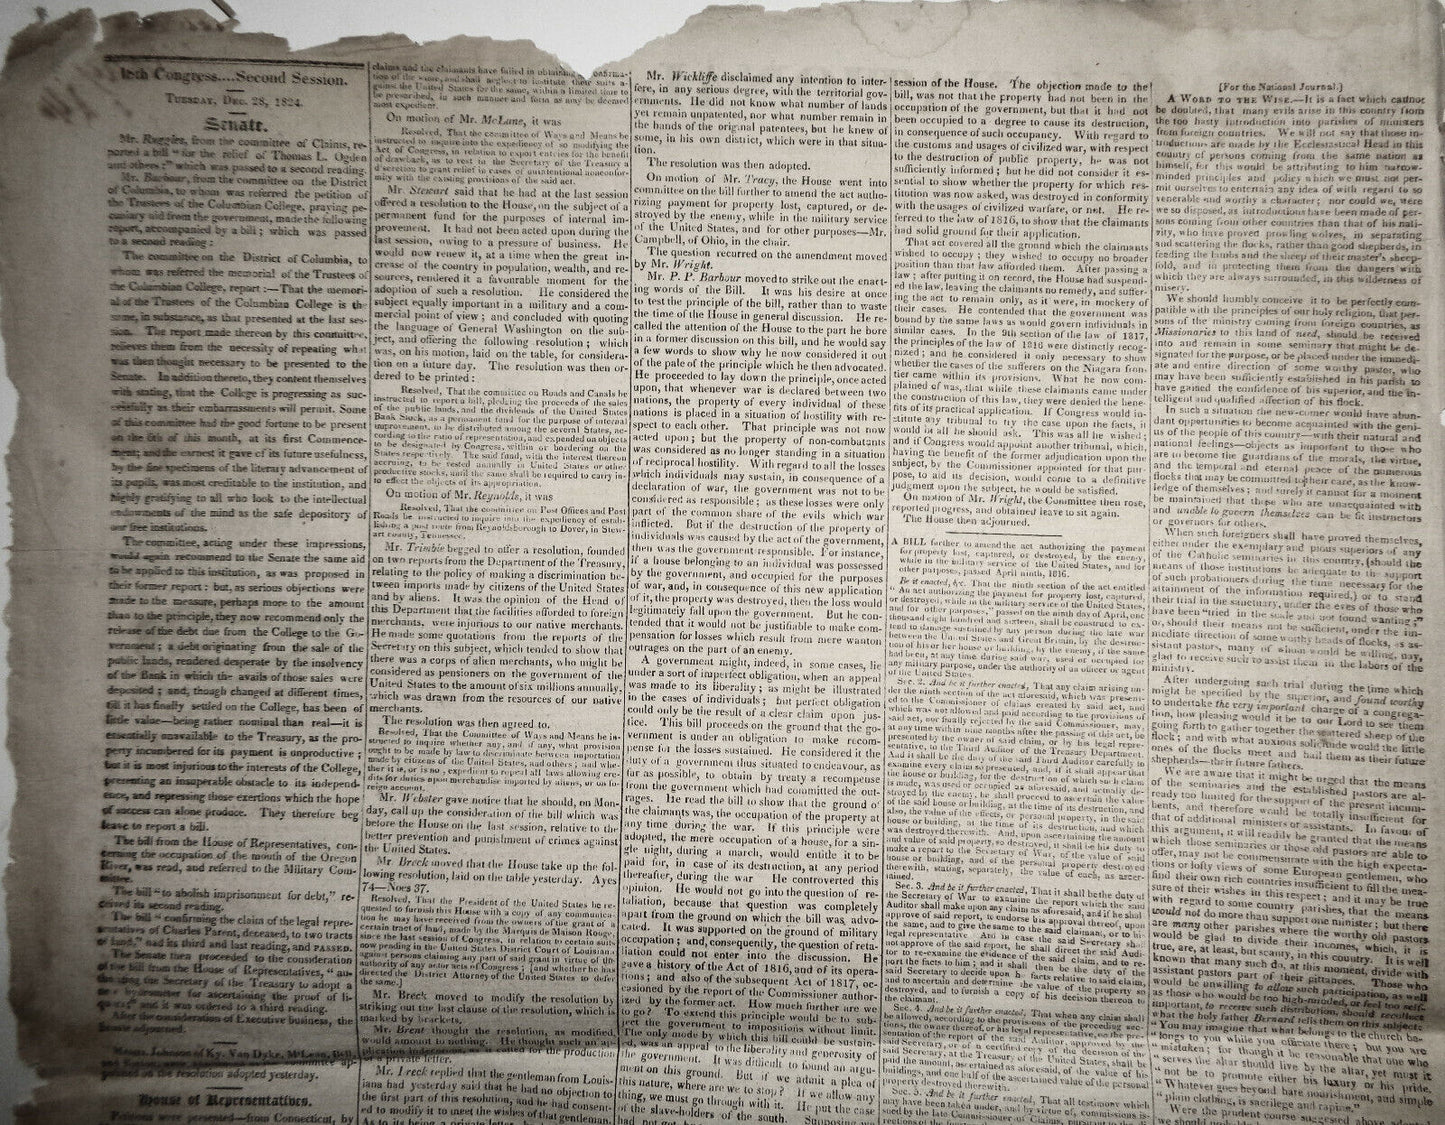 18th Congress....Second Session.
TUESDAY, DEC. 28, 1824.
Senate.
Mr. Ruggles, from the committee of Claims, re-
ported a bill "for the relief of Thomas L. Ogden
and others;" which was passed to a second reading.
Mr. Barbour, from the committee on the District
of Columbia, to whom was referred the petition of
the Trustees of the Columbian College, praying pe-
cuniary aid from the government, made the following
report, accompanied by a bill; which was passed
to a second reading:
The committee on the District of Columbia, to
whom was referred the memorial of the Trustees of
the Columbian College, report:—That the memori-
al of the Trustees of the Columbian College is the
same, in substance, as that presented at the last ses-
sion. The report made thereon by this committee,
relieves them from the necessity of repeating what
was then thought necessary to be presented to the
Senate. In addition thereto, they content themselves
with stating, that the College is progressing as suc-
cessfully as their embarrassments will permit. Some
of this committee had the good fortune to be present
on the 6th of this month, at its first Commence-
ment; and the earnest it gave of its future usefulness,
by the fine specimens of the literary advancement of
its pupils, was most creditable to the institution, and
highly gratifying to all who look to the intellectual
endowments of the mind as the safe depository of
our free institutions.
The committee, acting under these impressions,
would again recommend to the Senate the same aid
to be applied to this institution, as was proposed in
their former report: but, as serious objections were
made to the measure, perhaps more to the amount
than to the principle, they now recommend only the
release of the debt due from the College to the Go-
vernment; a debt originating from the sale of the
public lands, rendered desperate by the insolvency
of the Bank in which the avails of those sales were
deposited; and, though changed at different times,
till it has finally settled on the College, has been of
little value—being rather nominal than real—it is
essentially unavailable to the Treasury, as the pro-
perty incumbered for its payment is unproductive;
but it is most injurious to the interests of the College,
presenting an insuperable obstacle to its independ-
ence, and repressing those exertions which the hope
of success can alone produce. They therefore beg
leave to report a bill.
The bill from the House of Representatives, con-
cerning the occupation of the mouth of the Oregon
River, was read, and referred to the Military Com-
mittee.
The bill "to abolish imprisonment for debt," re-
ceived its second reading.
The bill "confirming the claim of the legal repre-
sentatives of Charles Parent, deceased, to two tracts
of land," had its third and last reading, and PASSED.
The Senate then proceeded to the consideration
of the bill from the House of Representatives, "au-
the Secretary of the Treasury to adopt a
for ascertaining the proof of li-
and it was ordered to a third reading.
After the consideration of Executive business, the
Senate adjourned.
Messrs. Johnson of Ky. Van Dyke, McLean, Bell,
on the resolution adopted yesterday.
House of Representatives.
Petitions were presented—from Connecticut, by
claims and the claimants have failed in obtaining confirma-
tion of the same, and shall neglect to institute their suits a-
gainst the United States for the same, within a limited time to
be prescribed, in such manner and form as may be deemed
most expedient.
On motion of Mr. McLane, it was
Resolved, That the committee of Ways and Means be
instructed to inquire into the expediency of so modifying the
Act of Congress, in relation to export entries for the benefit
of drawback, as to rest in the Secretary of the Treasury a
discretion to grant relief in cases of unintentional nonconfor-
mity with the existing provisions of the said act.
Mr. Stewart said that he had at the last session
offered a resolution to the House, on the subject of a
permanent fund for the purposes of internal im-
provement. It had not been acted upon during the
last session, owing to a pressure of business. He
would now renew it, at a time when the great in-
crease of the country in population, wealth, and re-
sources, rendered it a favourable moment for the
adoption of such a resolution. He considered the
subject equally important in a military and a com-
mercial point of view; and concluded with quoting
the language of General Washington on the sub-
ject, and offering the following resolution; which
was, on motion, laid on the table, for considera-
tion on a future day. The resolution was then or-
dered to be printed:
Resolved, That the committee on Roads and Canals be
instructed to report a bill, pledging the proceeds of the sales
of the public lands, and the dividends of the United States
Bank Stock, as a permanent fund for the purpose of internal
improvement, to be distributed among the several States, ac-
cording to the ratio of representation, and expended on objects
to be designated by Congress, within or bordering on the
States respectively. The said fund, with the interest thereon
accruing, to be vested annually in United States or other
productive stocks, until the same shall be required to carry in-
to effect the objects of its appropriation.
On motion of Mr. Reynolds, it was
Resolved, That the committee on Post Offices and Post
Roads be instructed to inquire into the expediency of estab-
lishing a post route from Reynoldsborough to Dover, in Stew-
art county, Tennessee.
Mr. Trimble begged to offer a resolution, founded
on two reports from the Department of the Treasury,
relating to the policy of making a discrimination be-
tween imports made by citizens of the United States
and by aliens. It was the opinion of the Head of
this Department that the facilities afforded to foreign
merchants, were injurious to our native merchants.
He made some quotations from the reports of the
Secretary on this subject, which tended to show that
there was a corps of alien merchants, who might be
considered as pensioners on the government of the
United States to the amount of six millions annually,
which was drawn from the resources of our native
merchants.
The resolution was then agreed to.
Resolved, That the Committee of Ways and Means be in-
structed to inquire whether any, and if any, what provision
ought to be made by law to discriminate between importation
made by citizens of the United States, and others; and whe-
ther it is, or is no, expedient to repeal all laws allowing cre-
dits for duties upon merchandise imported by aliens, or on fo-
reign account.
Mr. Webster gave notice that he should, on Mon-
day, call up the consideration of the bill which was
before the House on the last session, relative to the
better prevention and punishment of crimes against
the United States.
Mr. Breck moved that the House take up the fol-
lowing resolution, laid on the table yesterday. Ayes
74—Noes 37.
Resolved, That the President of the United States be re-
quested to furnish this House with a copy of any communica-
tion he may have received from the owners of the grant of a
certain tract of land, made by the Marquis de Maison Rouge,
since the last session of Congress, in relation to certain suits
now pending in the United States District Court of Louisiana
against persons claiming any part of said grant in virtue of the
authority of any acts of Congress; [and whether he has
directed the District Attorney of the United States to defend
the same.]
Mr. Breck moved to modify the resolution by
striking out the last clause of the resolution, which is
marked by brackets.
Mr. Brent thought the resolution, as modified,
would amount to nothing. He thought such an ap-
for the production
offer.
Mr. Breck replied that the gentleman from Louis-
iana had yesterday said that he had no objection to
the first part of this resolution, and he had consent-
ed to modify it to meet the wishes of that gentleman.
Mr. Wickliffe disclaimed any intention to inter-
fere, in any serious degree, with the territorial gov-
ernments. He did not know what number of lands
yet remain unpatented, nor what number remain in
the hands of the original patentees, but he knew of
some, in his own district, which were in that situa-
tion.
The resolution was then adopted.
On motion of Mr. Tracy, the House went into
committee on the bill further to amend the act autho-
rizing payment for property lost, captured, or de-
stroyed by the enemy, while in the military service
of the United States, and for other purposes—Mr.
Campbell, of Ohio, in the chair.
The question recurred on the amendment moved
by Mr. Wright.
Mr. P. P. Barbour moved to strike out the enact-
ing words of the Bill. It was his desire at once
to test the principle of the bill, rather than to waste
the time of the House in general discussion. He re-
called the attention of the House to the part he bore
in a former discussion on this bill, and he would say
a few words to show why he now considered it out
of the pale of the principle which he then advocated.
He proceeded to lay down the principle, once acted
upon, that whenever war is declared between two
nations, the property of every individual of these
nations is placed in a situation of hostility with re-
spect to each other. That principle was not now
acted upon; but the property of non-combatants
was considered as no longer standing in a situation
of reciprocal hostility. With regard to all the losses
which individuals may sustain, in consequence of a
declaration of war, the government was not to be
considered as responsible; as these losses were only
part of the common share of the evils which war
inflicted. But if the destruction of the property of
individuals was caused by the act of the government,
then was the government responsible. For instance,
if a house belonging to an individual was possessed
by the government, and occupied for the purposes
of war, and, in consequence of this new application
of it, the property was destroyed, then the loss would
legitimately fall upon the government. But he con-
tended that it would not be justifiable to make com-
pensation for losses which result from mere wanton
outrages on the part of an enemy.
A government might, indeed, in some cases, lie
under a sort of imperfect obligation, when an appeal
was made to its liberality; as might be illustrated
in the cases of individuals; but perfect obligation
could only be the result of a clear claim upon jus-
tice. This bill proceeds on the ground that the go-
vernment is under an obligation to make recom-
pense for the losses sustained. He considered it the
duty of a government thus situated to endeavour, as
far as possible, to obtain by treaty a recompense
from the government which had committed the out-
rages. He read the bill to show that the ground of
the claimants was, the occupation of the property at
any time during the war. If this principle were
adopted, the mere occupation of a house, for a sin-
gle night, during a march, would entitle it to be
paid for, in case of its destruction, at any period
thereafter, during the war. He controverted this
opinion. He would not go into the question of re-
taliation, because that question was completely
apart from the ground on which the bill was advo-
cated. It was supported on the ground of military
occupation; and, consequently, the question of reta-
liation could not enter into the discussion. He
gave a history of the Act of 1816, and of its opera-
tions; and also of the subsequent Act of 1817, oc-
casioned by the report of the Commissioner author-
ized by the former act. How much further are we
to go? To extend this principle would be to sub-
ject the government to impositions without limit.
The only mode by which this bill could be sustain-
ed, was an appeal to the liberality and generosity of
the government. It was difficult to found an argu-
ment on this ground. But if we admit a plea of
this nature, where are we to stop? If we allow any
thing, we must go through with it. He put the case
of the slave-holders of the south. Supposing
session of the House. The objection made to the
bill, was not that the property had not been in the
occupation of the government, but that it had not
been occupied to a degree to cause its destruction,
in consequence of such occupancy. With regard to
the customs and usages of civilized war, with respect
to the destruction of public property, he was not
sufficiently informed; but he did not consider it es-
sential to show whether the property for which res-
titution was now asked, was destroyed in conformity
with the usages of civilized warfare, or not. He re-
ferred to the law of 1816, to show that the claimants
had solid ground for their application.
That act covered all the ground which the claimants
wished to occupy; they wished to occupy no broader
position than that law afforded them. After passing a
law; after putting it on record, the House had suspend-
ed the law, leaving the claimants no remedy, and suffer-
ing the act to remain only, as it were, in mockery of
their cases. He contended that the government was
bound by the same laws as would govern individuals in
similar cases. In the 9th section of the law of 1817,
the principles of the law of 1816 were distinctly recog-
nized; and he considered it only necessary to show
whether the cases of the sufferers on the Niagara fron-
tier came within its provisions. What he now com-
plained of was, that while these claimants came under
the construction of this law, they were denied the bene-
fits of its practical application. If Congress would in-
stitute any tribunal to try the case upon the facts, it
would be all he should ask. This was all he wished;
and if Congress would appoint another tribunal, which,
having the benefit of the former adjudication upon the
subject, by the Commissioner appointed for that pur-
pose, to aid his decision, would come to a definitive
judgment upon the subject, he would be satisfied.
On motion of Mr. Wright, the Committee then rose,
reported progress, and obtained leave to sit again.
The House then adjourned.
A BILL further to amend the act authorizing the payment
for property lost, captured, or destroyed, by the enemy,
while in the military service of the United States, and for
other purposes, passed April ninth, 1816.
Be it enacted, &c. That the ninth section of the act entitled
"An act authorizing the payment of property lost, captured,
or destroyed, while in the military service of the United States,
and for other purposes," passed on the ninth day of April, one
thousand eight hundred and sixteen, shall be construed to ex-
tend to damage sustained by any person during the late war
between the United States and Great Britain, by the destruc-
tion of his or her house or building, by the enemy, if the same
had been, at any time during said war, used or occupied for
any military purpose, under the authority of an officer or agent
of the United States.
Sec. 2. And be it further enacted, That any claim arising un-
der the ninth section of the act aforesaid, which was present-
ed to the Commissioner of claims created by said act, and
which was not allowed and paid according to the provisions of
said act, nor finally rejected by said Commissioner, may,
at any time within nine months after the passing of this act, be
presented by the owner of said claim, or by his legal repre-
sentative, to the Third Auditor of the Treasury Department.
And it shall be the duty of the said Third Auditor carefully to
examine every claim so presented, and, if it shall appear that
the house or building, for the destruction of which such claim
is made, was used or occupied as aforesaid, and actually de-
stroyed by the enemy, he shall proceed to ascertain the value
of the said house or building, at the time of its destruction, and
also, the value of the effects, or personal property, in the said
house or building, at the time of its destruction, and which
was destroyed therewith. And, upon ascertaining the amount
and value of said property, so destroyed, it shall be his duty to
make a report to the Secretary of War, of the value of said
house or building, and of the personal property destroyed
therewith, stating, separately, the value of each, as ascer-
tained.
Sec. 3. And be it further enacted, That it shall be the duty of
the Secretary of War to examine the report which the said
Auditor shall make upon any claim as aforesaid, and if he shall
approve of said report, to endorse his approval thereof on
the same, and to give the same to the said claimant, or to his
legal representative. And in case the said Secretary shall
not approve of the said report, he shall direct the said Audi-
tor to re-examine the evidence of the said claim, and to re-
port the facts to him; and it shall then be the duty of the
said Secretary to decide upon the facts relative to said claim,
and to ascertain and determine the value of the property so
destroyed, and to furnish a copy of his decision thereon to
the claimant.
Sec. 4. And be it further enacted, That when any claim shall
be allowed according to the provisions of the preceding sec-
tions, the owner thereof, or his legal representative, on the pre-
sentation of the report of the said Auditor, approved by the
said Secretary, or of a certified copy of the decision of the
said Secretary, at the Treasury of the United States, shall be
paid the amount, ascertained as aforesaid, of the value of his
buildings, and one half of the ascertained value of the personal
property destroyed therewith.
Sec. 5. And be it further enacted, That all testimony which
may have been taken under, and by virtue of, commissions is-
sued by the late Commissioner of Claims, pursuant to the di-
[For the National Journal.]
A WORD TO THE WISE.—It is a fact which cannot
be doubted, that many evils arise in this country from
the too hasty introduction into parishes of ministers
from foreign countries. We will not say that those in-
troductions are made by the Ecclesiastical Head in this
country of persons coming from the same nation as
himself, for this would be attributing to him narrow-
minded principles and policy which we must not per-
mit ourselves to entertain any idea of with regard to so
venerable and worthy a character; nor could we, were
we so disposed, as introductions have been made of per-
sons coming from other countries than that of his nati-
vity, who have proved prowling wolves, in separating
and scattering the flocks, rather than good shepherds, in
feeding the lambs and the sheep of their master's sheep-
fold, and in protecting them from the dangers with
which they are always surrounded, in this wilderness of
misery.
We should humbly conceive it to be perfectly com-
patible with the principles of our holy religion, that per-
sons of the ministry coming from foreign countries, as
Missionaries to this land of need, should be received
into and remain in some seminary that might be de-
signated for the purpose, or be placed under the immedi-
ate and entire direction of some worthy pastor, who
may have been sufficiently established in his parish to
have gained the confidence of his superior, and the in-
telligent and qualified affection of his flock.
In such a situation the new-comer would have abun-
dant opportunities to become acquainted with the geni-
us of the people of this country—with their natural and
national feelings—objects as important to those who
are to become the guardians of the morals, the virtue,
and the temporal and eternal peace of the numerous
flocks that may be committed to their care, as the know-
ledge of themselves; and surely it cannot for a moment
be maintained that those who are unacquainted with
and unable to govern themselves can be fit instructors
or governors for others.
When such foreigners shall have proved themselves,
either under the exemplary and pious superiors of any
of the Catholic seminaries in this country, (should the
means of those institutions be adequate to the support
of such probationers during the time necessary for the
attainment of the information required,) or to stand
their trial in the sanctuary, under the eyes of those who
have been "tried in the scale and not found wanting;"
or, should their means not be sufficient, under the im-
mediate direction of some worthy heads of flocks, as as-
sistant pastors, many of whom would be willing, nay,
glad to receive such to assist them in the labors of the
ministry.
After undergoing such trial during the time which
might be specified by the superior, and found worthy
to undertake the very important charge of a congrega-
tion, how pleasing would it be to our Lord to see them
going forth to gather together the scattered sheep of the
flock; and with what anxious solicitude would the little
ones of the flocks meet and hail them as their future
shepherds—their future fathers.
We are aware that it might be urged that the means
of the seminaries and the established pastors are al-
ready too limited for the support of the present incum-
bents, and therefore would be totally insufficient for
that of additional ministers or assistants. In favour of
this argument, it will readily be granted that the means
which those seminaries or those old pastors are able to
offer, may not be commensurate with the high expecta-
tions or lofty views of some European gentlemen, who
find their own rich countries insufficient to fill the mea-
sure of their wishes in this respect; and it may be true
with regard to some country parishes, that the means
would not do more than support one minister; but there
are many other parishes where the worthy old pastors
would be glad to divide their incomes, which, it is
true, are, at least, but scanty, in this country. It is well
known that many such do, at this moment, divide with
assistant pastors part of their pittances. Those who
would be unwilling to allow such participation, as well
as those who would be too high-minded, or feel too self-
important, to receive such distribution, should recollect
what the holy father Bernard tells them on this subject:
"You may imagine that what belongs to the church be-
longs to you while you officiate there; but you are
"mistaken; for though it be reasonable that one who
"serves the altar should live by the altar, yet must it
"not be to promote either his luxury or his pride.
"Whatever goes beyond bare nourishment, and simple
"plain clothing, is sacrilege and rapine."
Were the prudent course suggested above adopted